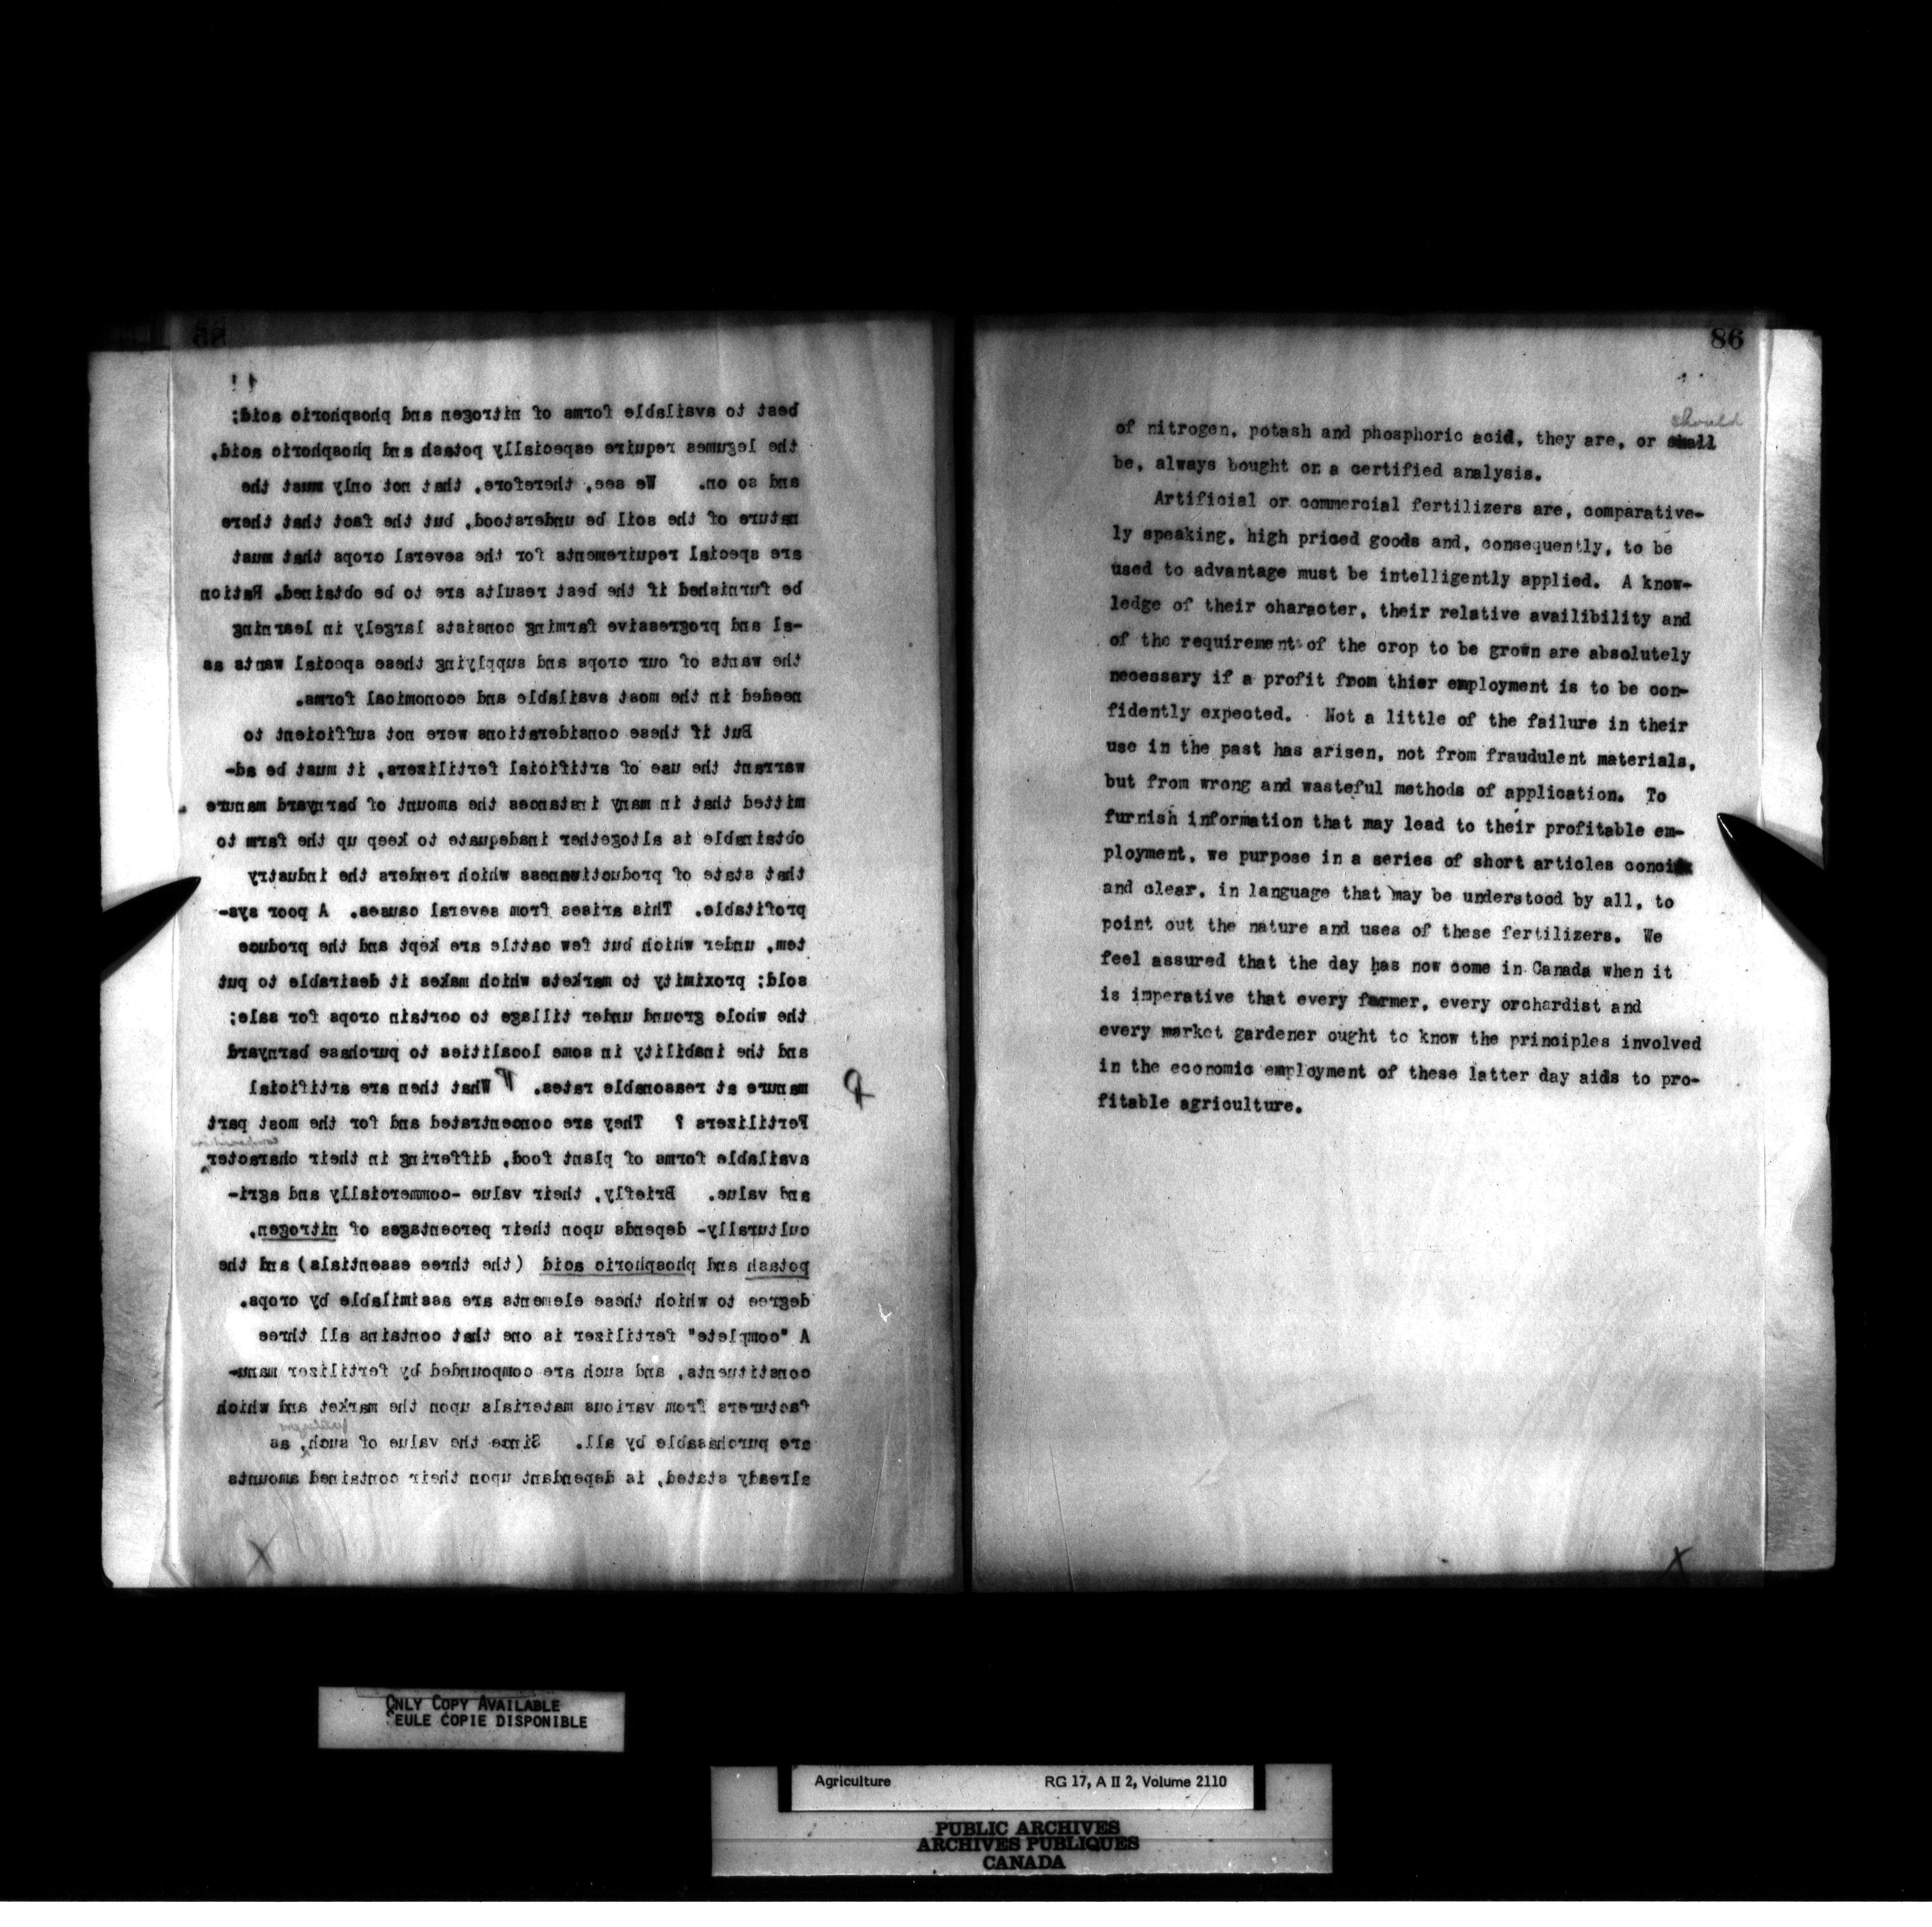 best to available forms of nitrogen and phosphoric acid;
the legumes require especially potash and phosphoric acid,
and so on. We see, therefore, that not only must the
nature of the soil be understood, but the fact that there
are special requirements for the several crops that must
be furnished if the best results are to be obtained. Ration
-al and progressive farming consists largely in learning
the wants of our crops and supplying these special wants as
needed in the most available and economical forms.
But if these considerations were not sufficient to
warrant the use of artificial fertilizers, it must be ad-
mitted that in many instances the amount of barnyard manure
obtainable is altogether inadequate to keep up the farm to
that state of productiveness which renders the industry
profitable. This arises from several causes. A poor sys-
tem, under which but few cattle are kept and the produce
sold; proximity to markets which makes it desirable to put
the whole ground under tillage to certain crops for sale;
and the inability in some localities to purchase barnyard
manure at reasonable rates. What then are artificial
Fertilizers ? They are concentrated and for the most part
composition
available forms of plant food, differing in their character,
and value. Briefly, their value -commercially and agri-
culturally- depends upon their percentages of nitrogen,
potash and phosphoric acid (the three essentials) and the
degree to which these elements are assimilable by crops.
A "complete" fertilizer is one that contains all three
constituents, and such are compounded by fertilizer manu-
facturers from various materials upon the market and which
fertilizers
are purchasable by all. Since the value of such, as
already stated, is dependant upon their contained amounts
X
86
should
of nitrogen, potash and phosphoric acid, they are, or shall
be, always bought on a certified analysis.
Artificial or commercial fertilizers are, comparative-
ly speaking, high priced goods and, consequently, to be
used to advantage must be intelligently applied. A know-
ledge of their character, their relative availibility and
of the requirements of the crop to be grown are absolutely
necessary if a profit from thier employment is to be con-
fidently expected. Not a little of the failure in their
use in the past has arisen, not from fraudulent materials,
but from wrong and wasteful methods of application. To
furnish information that may lead to their profitable em-
ployment, we purpose in a series of short articles
and clear, in language that may be understood by all, to
point out the nature and uses of these fertilizers. We
feel assured that the day has now come in Canada when it
is imperative that every farmer, every orchardist and
every market gardener ought to know the principles involved
in the economic employment of these latter day aids to pro-
fitable agriculture.
X
ONLY COPY AVAILABLE
SEULE COPIE DISPONIBLE
Agriculture RG 17, A II 2, Volume 2110
PUBLIC ARCHIVES
ARCHIVES PUBLIQUES
CANADA